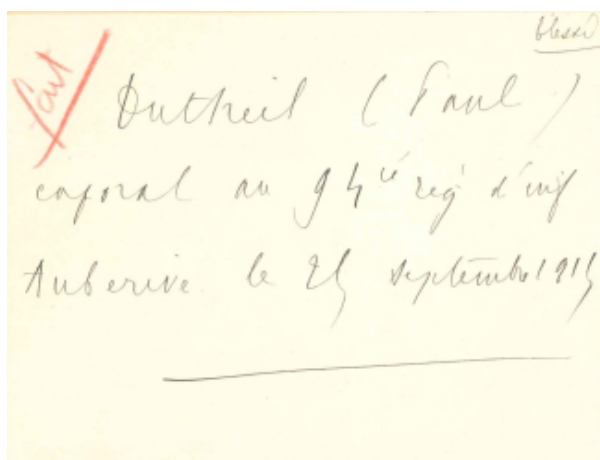 blessé
fait
Dutheil (Paul)
caporal au 94ie rég d'inf
Auberive le 25 septembre 1915